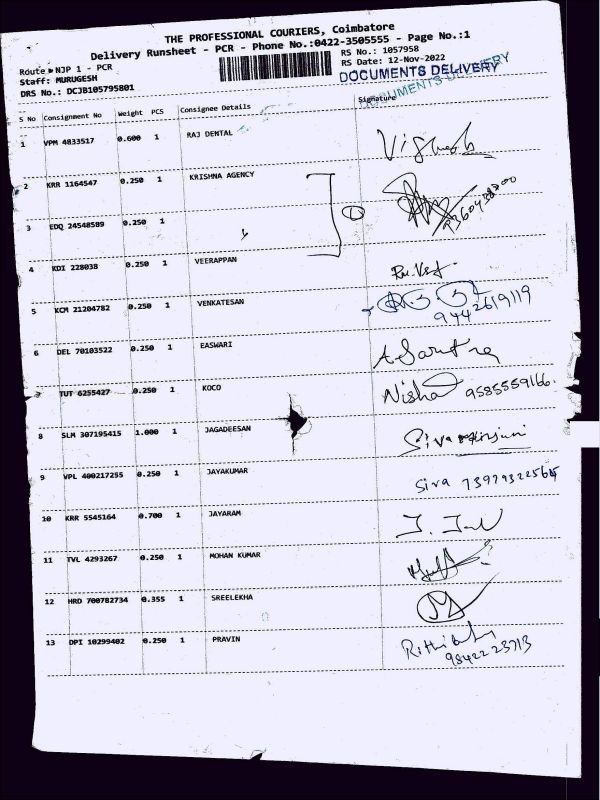 THE PROFESSIONAL COURIERS, Coimbatore
Delivery Runsheet - PCR - Phone No.:0422-3505555 - Page No.:1
Route : NJP 1 - PCR RS No.: 1057958
Staff: MURUGESH RS Date: 12-Nov-2022
DRS No.: DCJB105795801 DOCUMENTS DELIVERY
DOCUMENTS DELIVERY
S No Consignment No Weight PCS Consignee Details Signature
1 VPM 4833517 0.600 1 RAJ DENTAL
2 KRR 1164547 0.250 1 KRISHNA AGENCY
3 EDQ 24548589 0.250 1
4 KDI 228038 0.250 1 VEERAPPAN
5 KCM 21204782 0.250 1 VENKATESAN
9442619119
6 DEL 70103522 0.250 1 EASWARI
7 TUT 6255427 0.250 1 KOCO Nisha 9585559166
8 SLM 307195415 1.000 1 JAGADEESAN
9 VPL 400217255 0.250 1 JAYAKUMAR Siva
10 KRR 5545164 0.700 1 JAYARAM
11 TVL 4293267 0.250 1 MOHAN KUMAR
12 HRD 700782734 0.355 1 SREELEKHA
13 DPI 10299402 0.250 1 PRAVIN